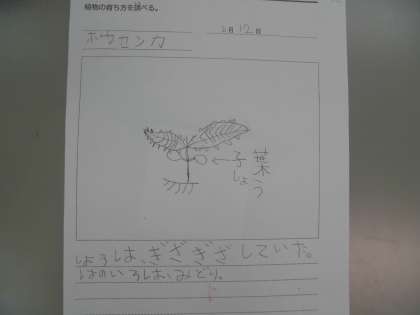 植物の育ち方を調べる。
ホウセンカ
月12日
子しょう
葉
しようは、ぎざぎざしていた。
はのいろは、みどり。